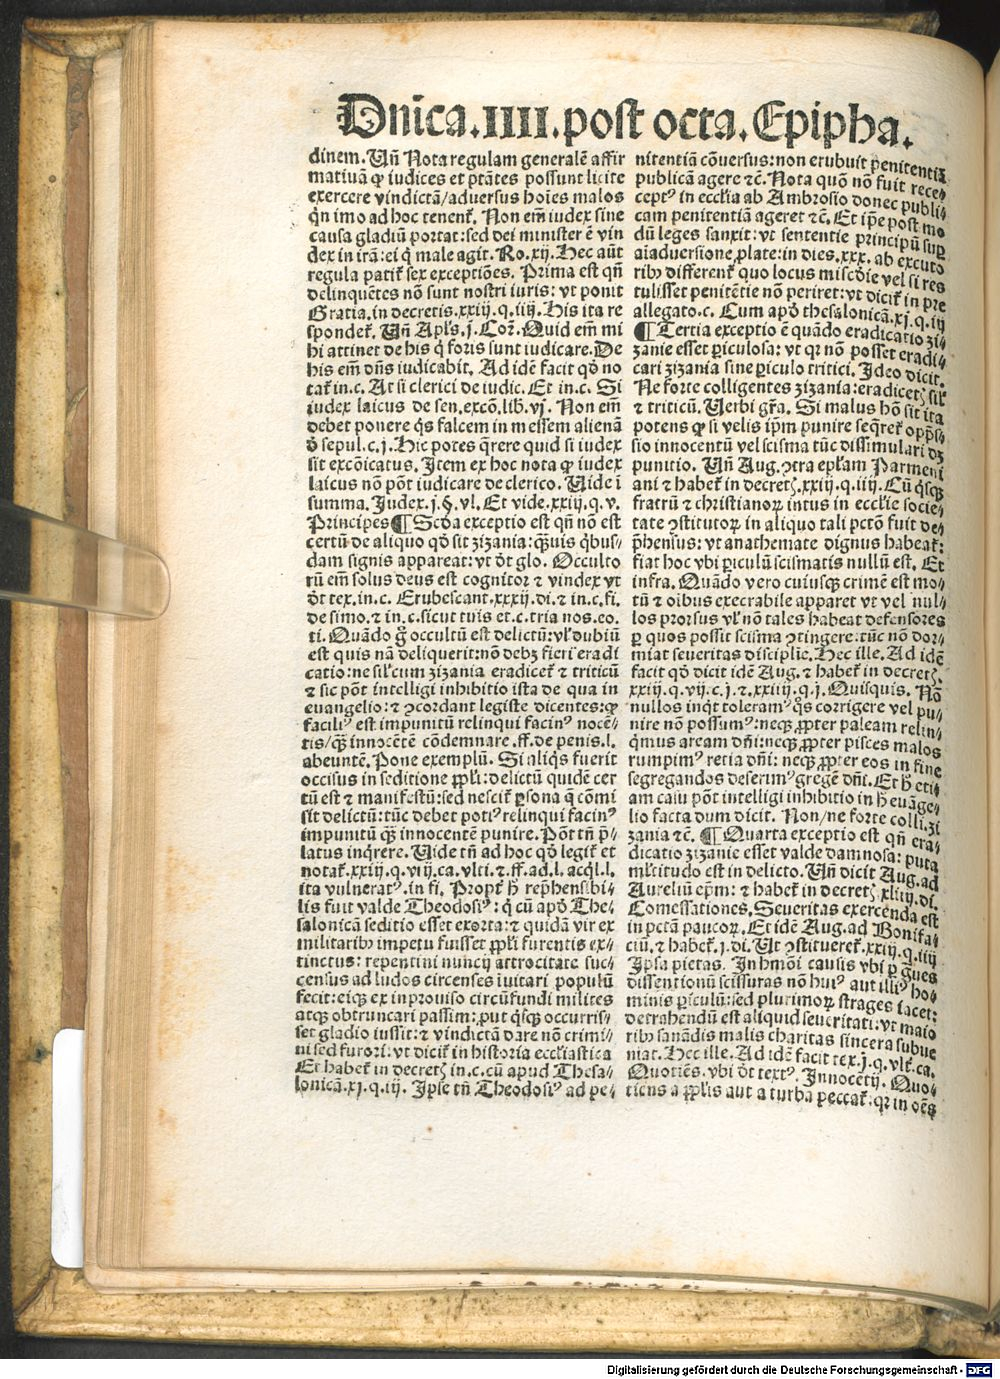 Dnica.IIII.post octa.Epipha.
dinem.Uñ Nota regulam generalē affir
matiuā ꝙ iudices et ptātes possunt licite
exercere vindictā/aduersus hoīes malos
q̇n imo ad hoc tenent̃. Non em̄ iudex sine
causa gladiū portat:sed dei minister ē vin
dex in irā:ei q̇ male agit. Ro.xij. Hec aūt
regula patit̃ sex exceptiōes. Prima est qñ
delinquētes nō sunt nostri iuris: vt ponit
Gratia.in decretis.xxiij.q.iiij. His ita re
spondet̃. Uñ Apl's.j.Coꝛ. Quid em̄ mi
hi attinet de his q̇ foris sunt iudicare. De
his em̄ dn̄s iudicabit. Ad idē facit qḋ no
tat̃ in.c. At si clerici de iudic. Et in.c. Si
iudex laicus de sen.excō.lib.vj. Non em̄
debet ponere q̇s falcem in messem alienā
ḋ sepul.c.j. Hic potes q̄rere quid si iudex
sit excōicatus. Item ex hoc nota ꝙ iudex
laicus nō pōt iudicare de clerico. Uide ī
summa. Iudex.j.§.vl. Et vide.xxiij.q.v.
Principes ¶ Scḋa exceptio est qñ nō est
certū de aliquo qḋ sit zizania: q̄ȝuis q̇bus⸗
dam signis appareat: vt ḋt glo. Occulto
rū em̄ solus deus est cognitor ⁊ vindex vt
ḋt tex.in.c. Erubescant.xxxij.di.⁊ in.c.fi.
de simo.⁊ in.c.sicut tuis et.c.tria nos.eo.
ti. Quādo g̊ occultū est delictū: vl' dubiū
est quis nā deliquerit: nō debȝ fieri eradi
catio: ne sil' cum zizania eradicet̃ ⁊ triticū
⁊ sic pōt intelligi inhibitio ista de qua in
euangelio: ⁊ ꝯcordant legiste dicentes:ꝙ
faciliꝰ est impunitū relinqui facinꝰ nocē⸗
tis/q̄ȝ innocētē cōdemnare.ff.de penis.l.
absentē. Pone exemplū. Si aliq̇s fuerit
occisus in seditione ꝓpl'i: delictū quidē cer
tū est ⁊ manifestū: sed nescit̃ ꝑsona q̄ cōmi
sit delictū: tūc debet potiꝰ relinqui facinꝰ
impunitū q̄ȝ innocentē punire. Pōt tn̄ p̄⸗
latus inq̇rere. Uide tn̄ ad hoc qḋ legit̃ et
notat̃.xxiij.q.viij.ca.vlti.⁊.ff.ad.l.acq̇l.l.
ita vulneratꝰ.in fi. Propt̃ h̄ rep̄hensibi⸗
lis fuit valde Theodosiꝰ: q̇ cū apḋ The⸗
salonicā seditio esset exorta: ⁊ quidā vir ex
militarib⁹ impetu fuisset ꝓpl'i furentis ex⸗
tinctus: repentini nuncij attrocitate suc⸗
census ad ludos circenses iuitari populū
fecit: eiqȝ ex inprouiso circūfundi milites
atqȝ obtruncari passim: ꝓut q̇sqȝ occurris⸗
set gladio iussit: ⁊ vindictā dare nō crimi⸗
ni sed furori: vt dicit̃ in historia eccl'iastica
Et habet̃ in decretȝ in.c.cū apud Thesa⸗
lonicā.xj.q.iij. Ipse tn̄ Theodosiꝰ ad pe⸗
nitentiā cōuersus: non erubuit penitentiā
publicā agere ⁊c. Nota quō nō fuit rece⸗
ceptꝰ in eccl'ia ab Ambrosio donec publi⸗
cam penitentiā ageret ⁊c. Et ip̄e post mo
dū leges sanxit: vt sententie principū suꝑ
aiaduersione plate: in dies.xxx. ab executo
rib⁹ different̃ quo locus miscḋie vel si res
tulisset penitētie nō periret: vt dicit̃ in pre
allegato.c. Cum apḋ thesalonicā.xj.q.iij
¶ Tertia exceptio ē quādo eradicatio zi⸗
zanie esset ꝑiculosa: vt qꝛ nō posset eradi⸗
cari zizania sine ꝑiculo tritici. Ideo dicit.
Ne forte colligentes zizania: eradicetȝ sil'
⁊ triticū. Uerbi gr̄a. Si malus hō sit ita
potens ꝙ si velis ip̄m punire seq̄ret̃ opp̄s⸗
sio innocentū vel scisma tūc dissimulari dȝ
punitio. Uñ Aug.ꝯtra epl'am Parmeni
ani ⁊ habet̃ in decretȝ.xxiij.q.iiij. Cū q̇sqȝ
fratrū ⁊ christianoꝝ intus in eccl'ie socie⸗
tate ꝯstitutoꝝ in aliquo tali pctō fuit de⸗
p̄hensus: vt anathemate dignus habeat̃:
fiat hoc vbi ꝑiculū scismatis nullū est. Et
infra. Quādo vero cuiusqȝ crimē est mo⸗
tū ⁊ oibus execrabile apparet vt vel nul⸗
los prorsus vl' nō tales habeat defensores
ꝑ quos possit scisma ꝯtingere: tūc nō dor⸗
miat seueritas discipl'ie. Hec ille. Ad idē
facit qḋ dicit idē Aug. ⁊ habet̃ in decretȝ.
xxiij.q.vij.c.j.⁊.xxiiij.q.j. Quisquis. Nō
nullos inq̇t toleramꝰ q̇s corrigere vel pu⸗
nire nō possumꝰ: neqȝ ꝓpter paleam relin⸗
q̇mus aream dn̄i: neqȝ ꝓpter pisces malos
rumpimꝰ retia dn̄i: neqȝ ꝓpter eos in fine
segregandos deserimꝰ gregē dn̄i. Et h̄ eti⸗
am casu pōt intelligi inhibitio in h̄ euāge⸗
lio facta dum dicit. Non/ne forte colli.zi
zania ⁊c. ¶ Quarta exceptio est qñ era⸗
dicatio zizanie esset valde damnosa: puta
ml'titudo est in delicto. Uñ dicit Aug.ad
Aureliū ep̄m: ⁊ habet̃ in decretȝ xliiij.di.
Comessationes. Seueritas exercenda est
in pctā paucoꝝ. Et idē Aug.ad Bonifa⸗
ciū.⁊ habet̃.j.di. Ut ꝯstitueret̃.xxiij.q.iiij
Ipsa pietas. In hmōi causis vbi ꝑ gues
dissentionū scissuras nō huiꝰ aut illiꝰ ho⸗
minis ꝑiculū: sed plurimoꝝ strages iacet:
detrahendū est aliquid seueritati: vt maio
rib⁹ sanādis malis charitas sincera subue
niat. Hec ille. Ad idē facit tex.j.q.vlt̃.ca.
Quotiēs. vbi ḋt textꝰ. Innocētij. Quo⸗
tiens a ꝓpl'is aut a turba peccat̃: qꝛ in oēs
Digitalisierung gefördert durch die Deutsche Forschungsgemeinschaft - DFG